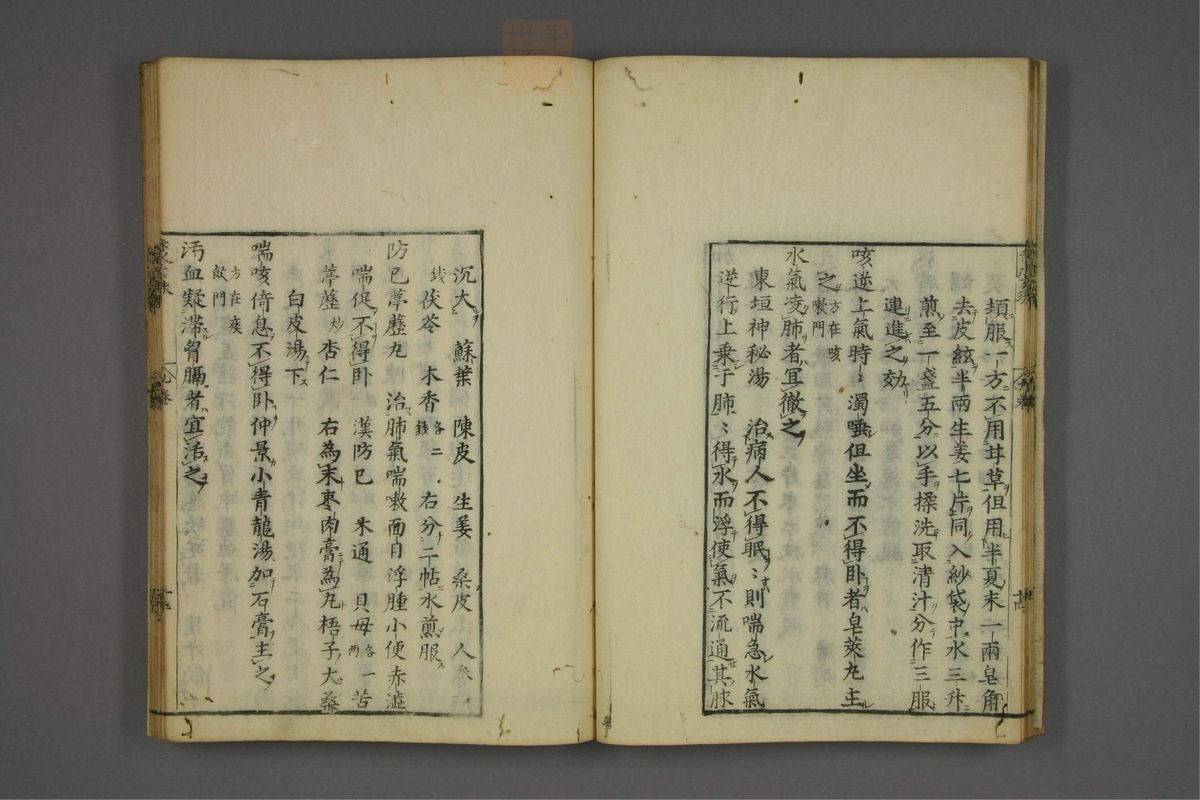 頓服一方不用甘草但用半夏末一兩皂角
去皮絃半兩生姜七片同入紗袋中水三升
煎至一盞五分以手揉洗取清汁分作三服
連進之効
咳逆上氣時〻濁唾但坐而不得臥者皂莢丸主
之方在咳嗽門
水氣凌肺者宜徹之
東垣神秘湯 治病人不得眠〻則喘急水氣
逆行上乗于肺〻得水而浮使氣不流通其脉
沉大 蘇葉 陳皮 生姜 桑皮 人参
錢茯苓 木香各二錢 右分二帖水煎服
防已葶藶丸 治肺氣喘嗽面目浮腫小便赤澁
喘促不得臥 漢防已 木通 貝母各一両 苦
葶藶炒 杏仁 右為末枣肉膏為丸梧子大桑
白皮湯下
喘咳倚息不得臥仲景小青龍湯加石膏主之
方在痰飮門
汚血凝滯胷膈者宜活之